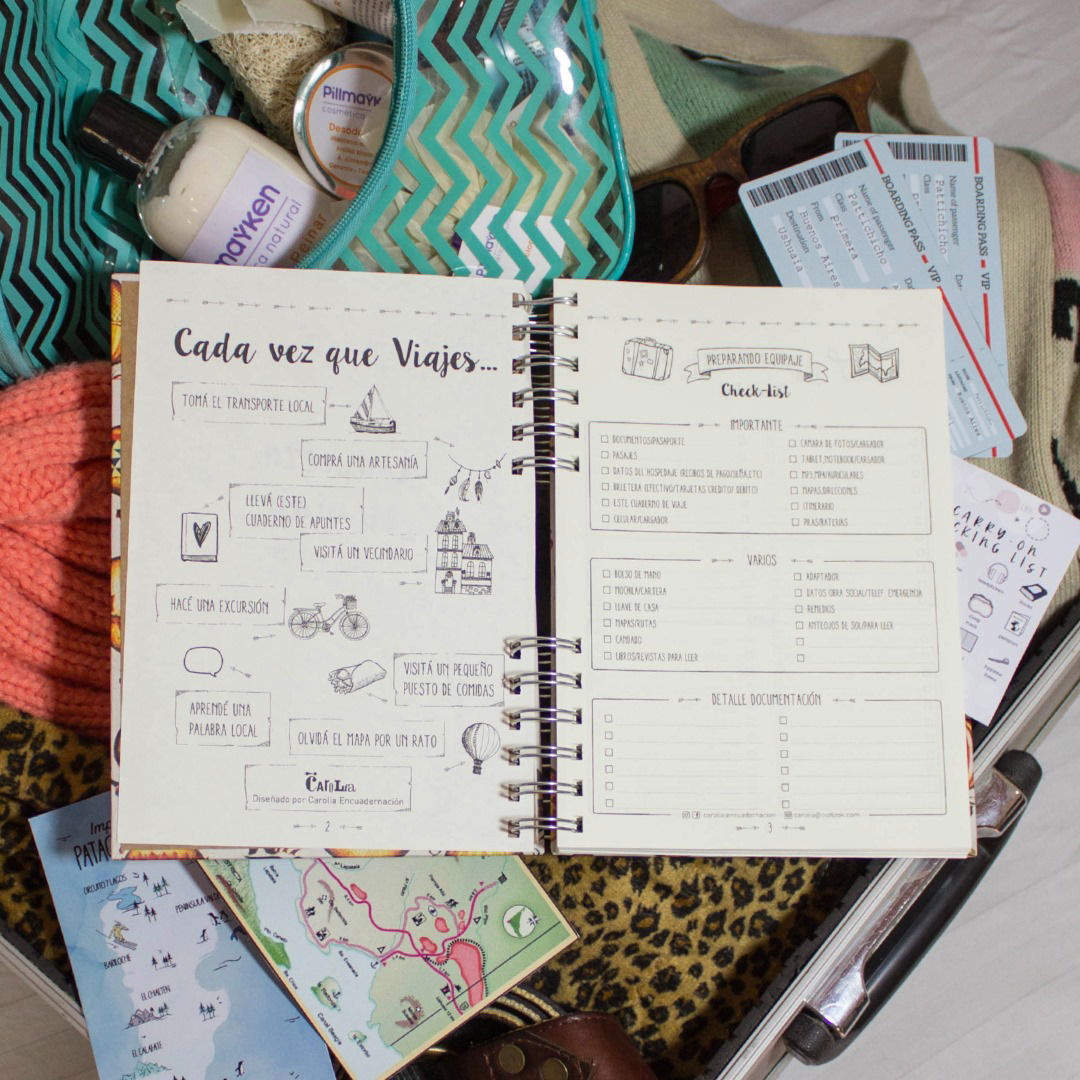 Pillmaÿk
cosmética
Desodo
maÿken
natural
Pillmaÿ
Cada vez que Viajes...
TOMÁ EL TRANSPORTE LOCAL
COMPRÁ UNA ARTESANÍA
LLEVÁ (ESTE)
CUADERNO DE APUNTES
VISITÁ UN VECINDARIO
HACÉ UNA EXCURSIÓN
VISITÁ UN PEQUEÑO
PUESTO DE COMIDAS
APRENDÉ UNA
PALABRA LOCAL
OLVIDÁ EL MAPA POR UN RATO
CAROLÍA
Diseñado por Carolía Encuadernación
2
PREPARANDO EQUIPAJE
Check-List
IMPORTANTE
DOCUMENTOS/PASAPORTE
PASAJES
DATOS DEL HOSPEDAJE (RECIBOS DE PAGO/SEÑA,ETC)
BILLETERA (EFECTIVO/TARJETAS CREDITO/ DEBITO)
ESTE CUADERNO DE VIAJE
CELULAR/CARGADOR
CAMARA DE FOTOS/CARGADOR
TABLET,NOTEBOOK/CARGADOR
MP3,MP4/AURICULARES
MAPAS,DIRECCIONES
ITINERARIO
PILAS/BATERIAS
VARIOS
BOLSO DE MANO
MOCHILA/CARTERA
LLAVE DE CASA
MAPAS/RUTAS
CANDADO
LIBROS/REVISTAS PARA LEER
ADAPTADOR
DATOS OBRA SOCIAL/TELEF EMERGENCIA
REMEDIOS
ANTEOJOS DE SOL/PARA LEER
DETALLE DOCUMENTACIÓN
carolia.encuadernacion
carolia@outlook.com
3
BOARDING PASS
VIP
Name of passenger
Pattichicho
Class
Primera
From
Buenos Aires
Destination
Ushuaia
BOARDING PASS
VIP
Name of passenger
Pattichicho
Class
Buenos Aires
CARRY-ON
CKING LIST
PATAG
CIRCUITO 7 LAGOS
PENINSULA VALD
BARILOCHE
EL CHALTEN
EL CALAFATE